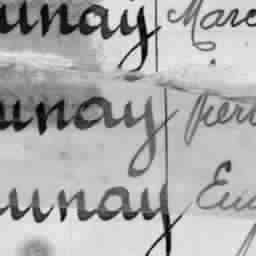 unay Marc
unay Pier
unay Eu